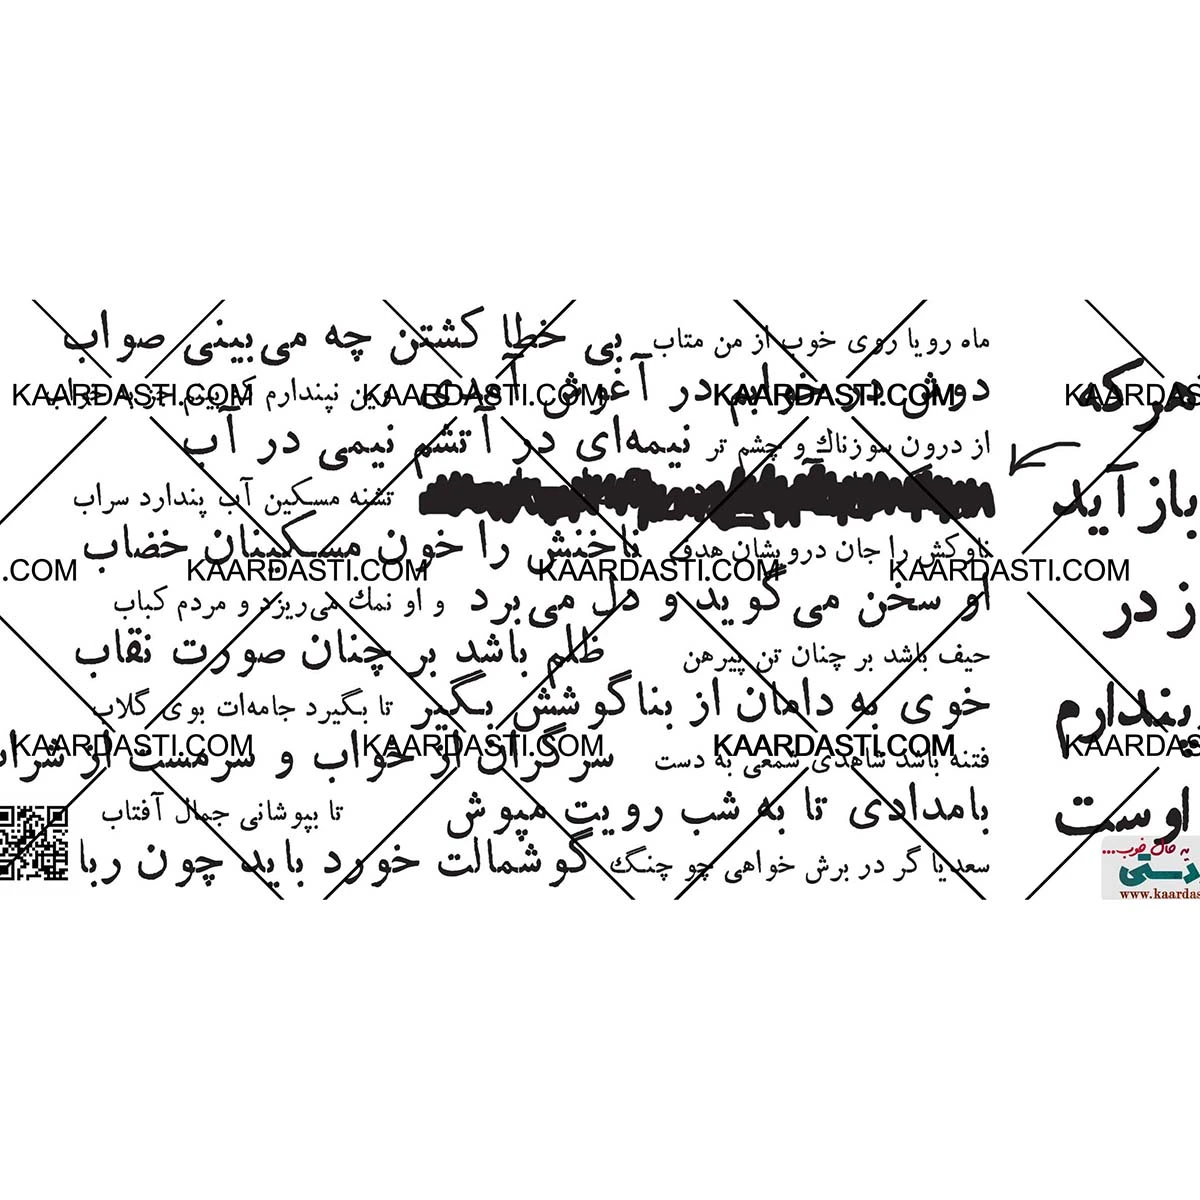 ماه رویا روی خوب از من متاب بی خطا کشتن چه می‌بینی صواب
دوش در خوابم در آغوش آمدی وین نپندارم که بینم جز به خواب
از درون سوزناك و چشم تر نیمه‌ای در آتشم نیمی در آب
تشنه مسکین آب پندارد سراب
ناوکش را جان درویشان هدف ناخنش را خون مسکینان خضاب
او سخن می‌گوید و دل می‌برد و او نمك می‌ریزد و مردم کباب
حیف باشد بر چنان تن پیرهن ظلم باشد بر چنان صورت نقاب
خوی به دامان از بناگوشش بگیر تا بگیرد جامه‌ات بوی گلاب
فتنه باشد شاهدی شمعی به دست سرگران از خواب و سرمست از شراب
بامدادی تا به شب رویت مپوش تا بپوشانی جمال آفتاب
سعدیا گر در برش خواهی چو چنگ گوشمالت خورد باید چون ربا
هرکه
بازآید
ز در
پندارم
اوست
KAARDASTI.COM KAARDASTI.COM KAARDASTI.COM KAARDAS
.COM KAARDASTI.COM KAARDASTI.COM KAARDASTI.COM
KAARDASTI.COM KAARDASTI.COM KAARDASTI.COM KAARDAS
یه حال خوب...
دستی
www.kaardas